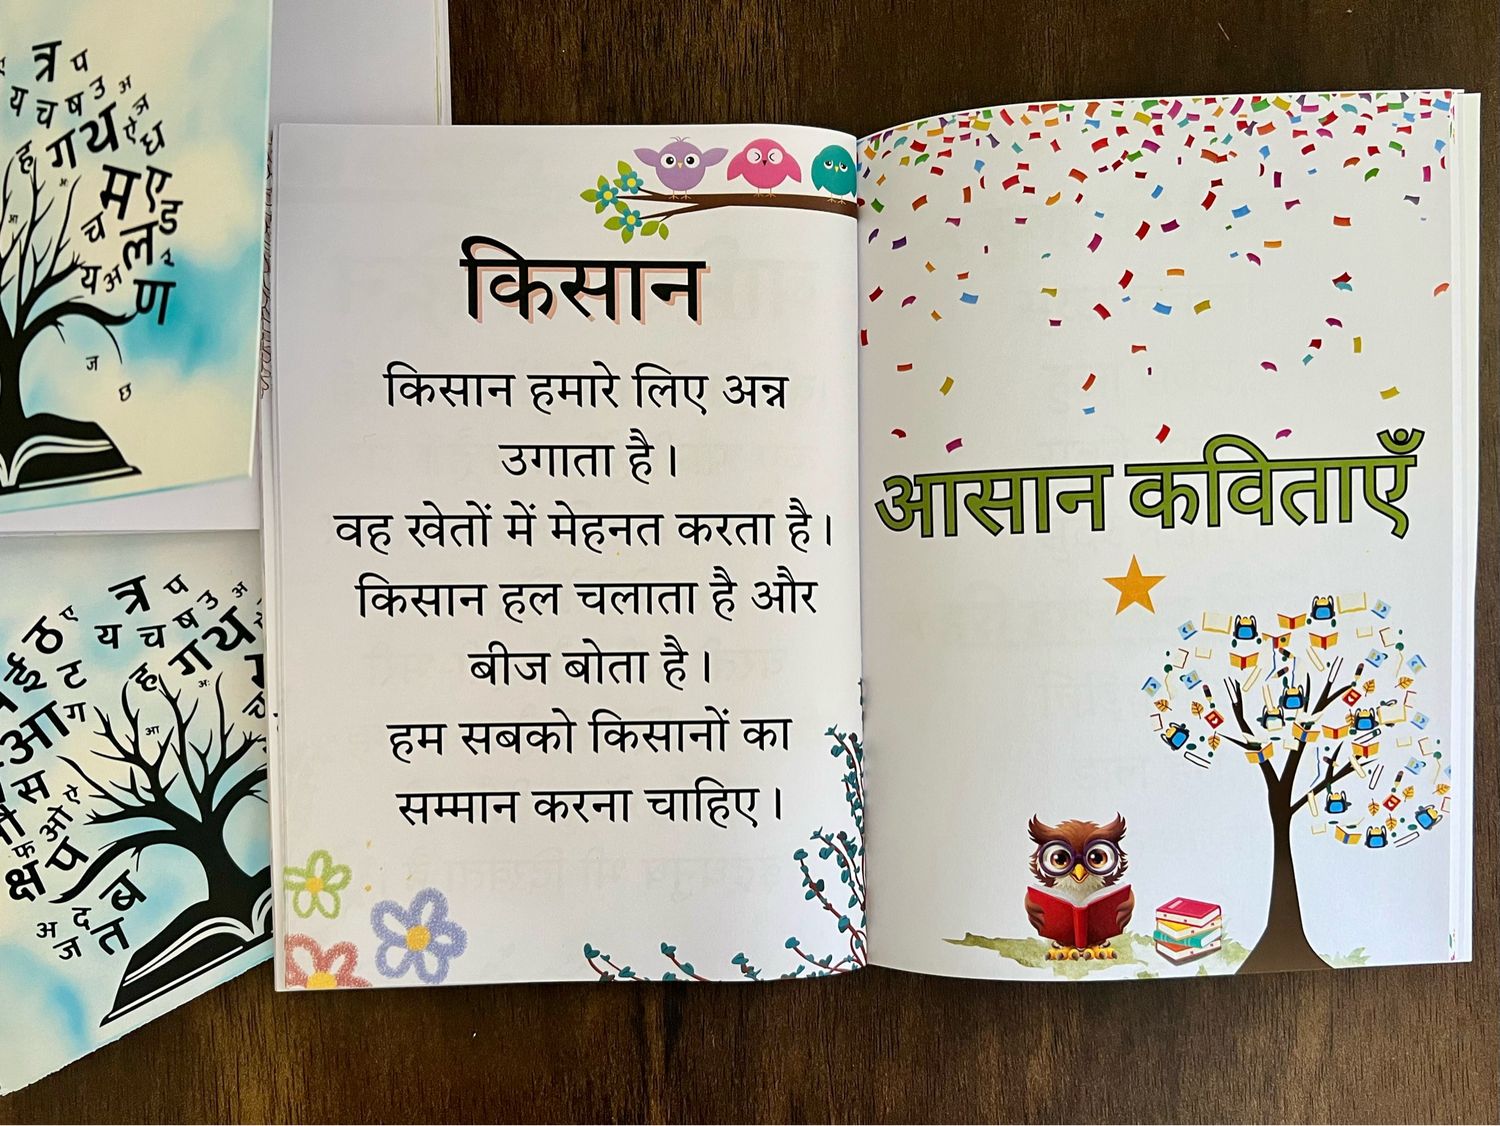 किसान
किसान हमारे लिए अन्न
उगाता है।
वह खेतों में मेहनत करता है।
किसान हल चलाता है और
बीज बोता है।
हम सबको किसानों का
सम्मान करना चाहिए।
आसान कविताएँ
त्र प
य च ष उ अ
ह ग थ ऐ ध
म ए
च ल ड
य अ ण
ज
छ
त्र प
ठ ए य च ष उ अ
ई ट ह ग थ
आ ग
आ
स
फ ओ ऐ
क्ष प
अ द ब
ज त